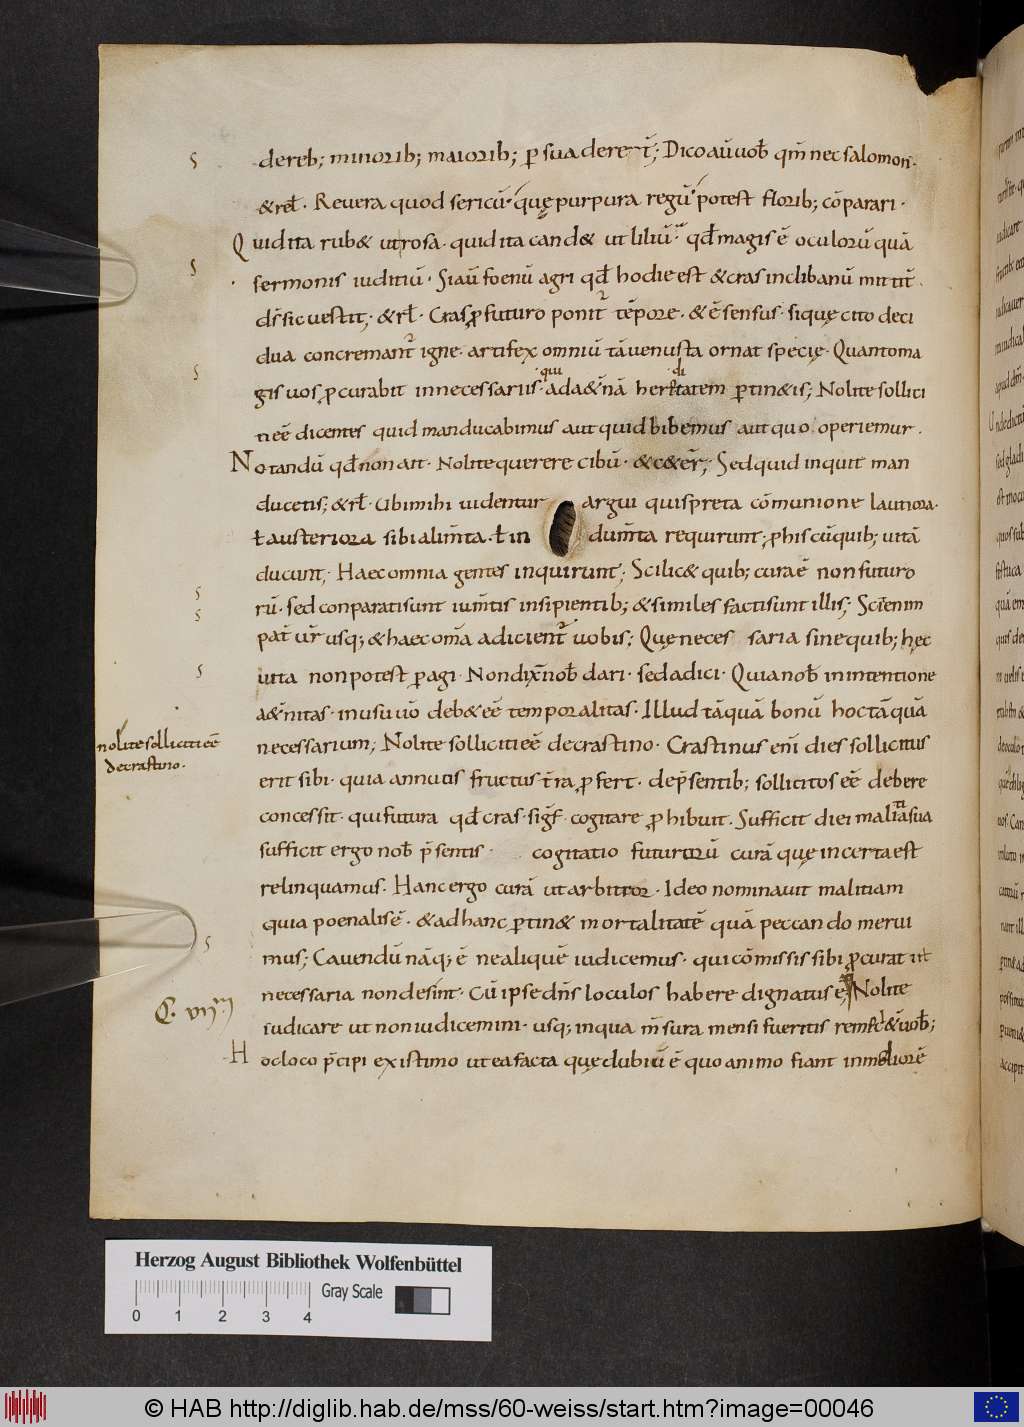 dereb; minorib; maiorib; ꝑsuaderet̄; Dico aū vob̄ qm̄ nec salomon.
&rel̄. Revera quod sericū. quę purpura regū potest florib; cōparari.
Quid ita rub& ut rosa. quid ita cand& ut liliū. qd̄ magis ē oculorū quā
sermonis iuditiū. Si aū foenū agri qd̄ hodie est & cras in clibanū mittit̄.
dr̄ sic vestit; &rl̄. Cras ꝓ futuro ponit̄ tēpore. & ē sensus. si quę cito deci
dua concremant̄ igne. artifex omniū tā venusta ornat specię. Quanto ma
gis vos ꝓcurabit in necessariis. qui ad aet̄nā
di
ꝑtin&is; Nolite sollici
ti eē dicentes quid manducabimus aut quid bibemus aut quo operiemur.
Notandū qd̄ non ait. Nolite querere cibū. &c&er̄; Sed quid inquit man
ducetis; &rl̄. Ubi mihi videntur argui qui spreta cōmunione lautiora.
ł austeriora sibi alim̄ta. ł indum̄ta requirunt; ꝓ his cū quib; vitā
ducunt; Haec omnia gentes inquirunt; Scilic& quib; cura ē non futuro
rū. sed conparati sunt ium̄tis insipientib; & similes facti sunt illis; Scit enim
pat̄ vr̄ usq; & haec om̄a adicient̄ vobis; Quę necessaria sine quib; hęc
vita non potest ꝑagi. Non dix̄ nob̄ dari. sed adici. Quia nob̄ in intentione
aet̄nitas. in usu ūo deb& eē temporalitas. Illud tāquā bonū hoc tāquā
necessarium; Nolite solliciti eē de crastino. Crastinus enī dies sollicitus
nolite solliciti eē
de crastino.
erit sibi. quia annuus fructus t̄ra ꝓfert. de p̄sentib; sollicitos eē debere
concessit. qui futura qd̄ cras. sigf̄. cogitare ꝓhibuit. Sufficit diei malitia sua
sufficit ergo nob̄ p̄sentis cogitatio futurorū curā quę incerta est
relinquamus. Hanc ergo curā ut arbitror. Ideo nominavit malitiam
quia poenalis ē. & ad hanc ꝑtin& mortalitatē quā peccando merui
mus; Cavendū nāq; ē ne aliquē iudicemus. qui cōmissis sibi ꝓcurat ut
necessaria non desint. Cū ipse dn̄s loculos habere dignatus ē; Nolite
iudicare ut non iudicemini. usq; in qua m̄sura mensi fueritis remec̄&̄ vob̄;
Hoc loco p̄cipi existimo ut ea facta quę dubiū ē quo animo fiant in meliorē
Herzog August Bibliothek Wolfenbüttel
Gray Scale
0 1 2 3 4
© HAB http://diglib.hab.de/mss/60-weiss/start.htm?image=00046